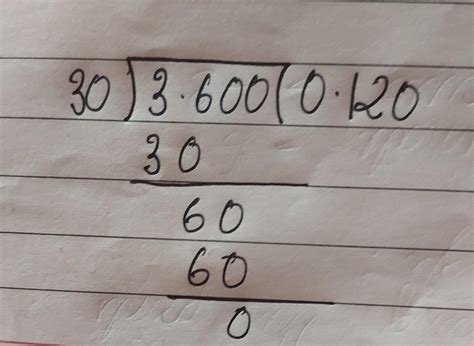 30)3.600(0.120
30
60
60
0